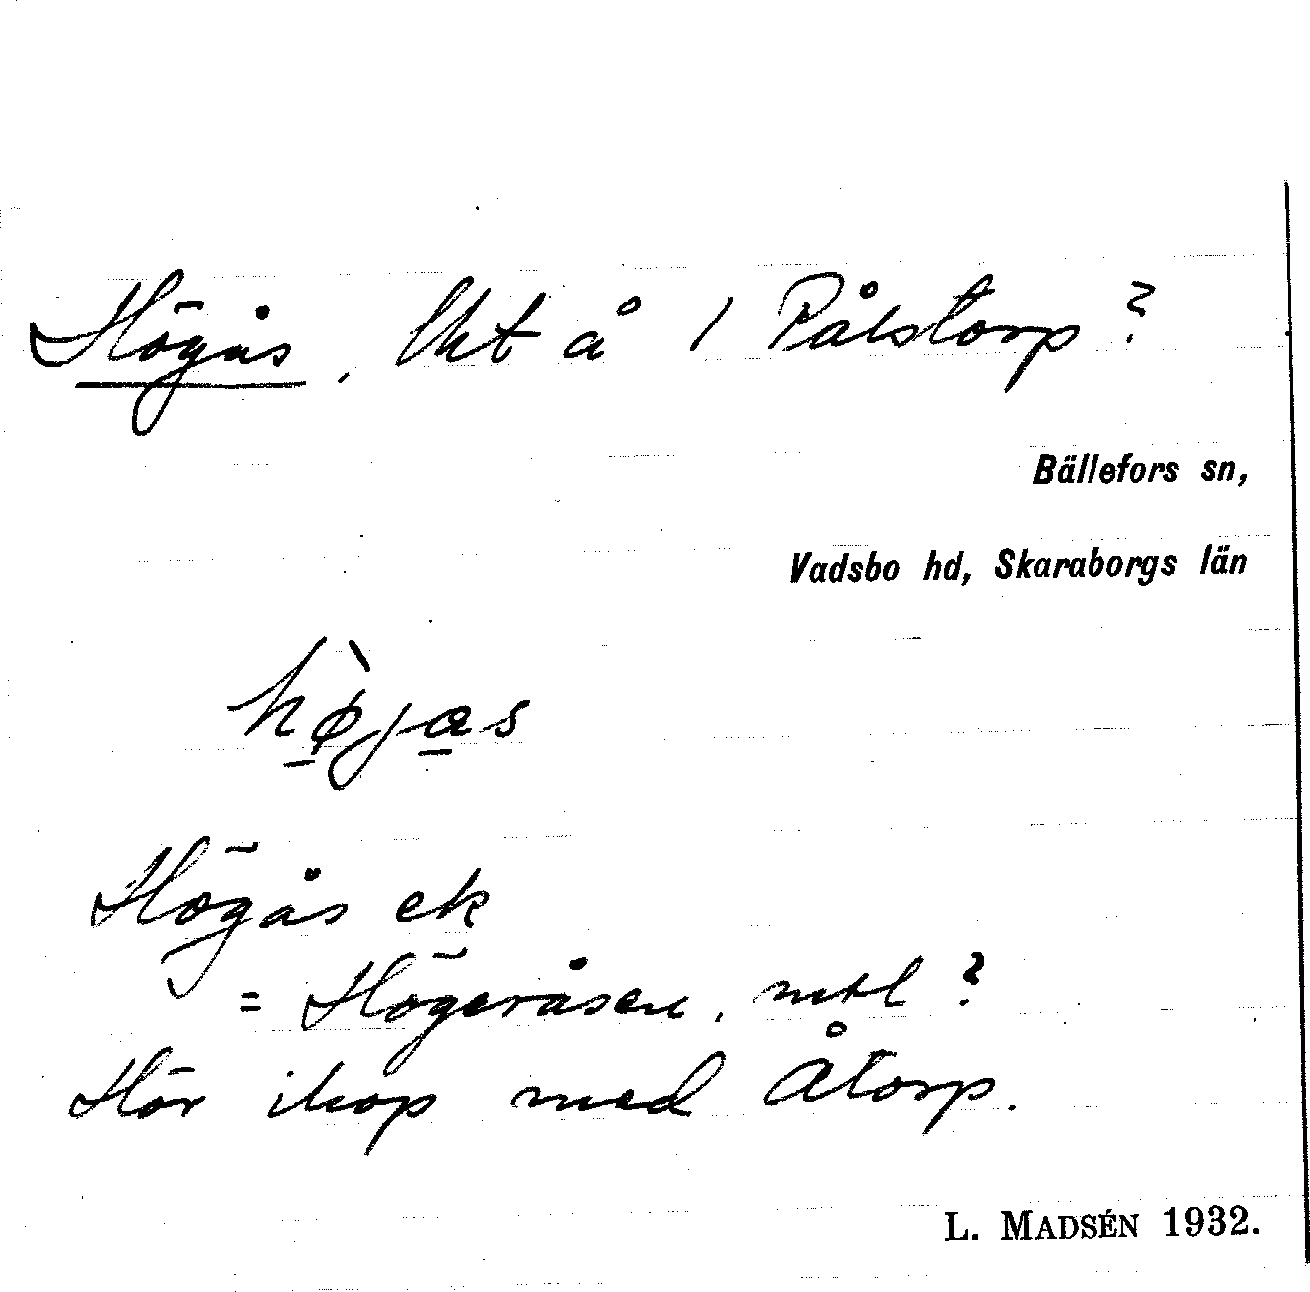 Högås, lht å 1 Pålstorp?
Bällefors sn,
Vadsbo hd, Skaraborgs län
hø̀jas
Högås ek
= Högeråsen, mtl?
Hör ihop med Åtorp.
L. MADSÉN 1932.